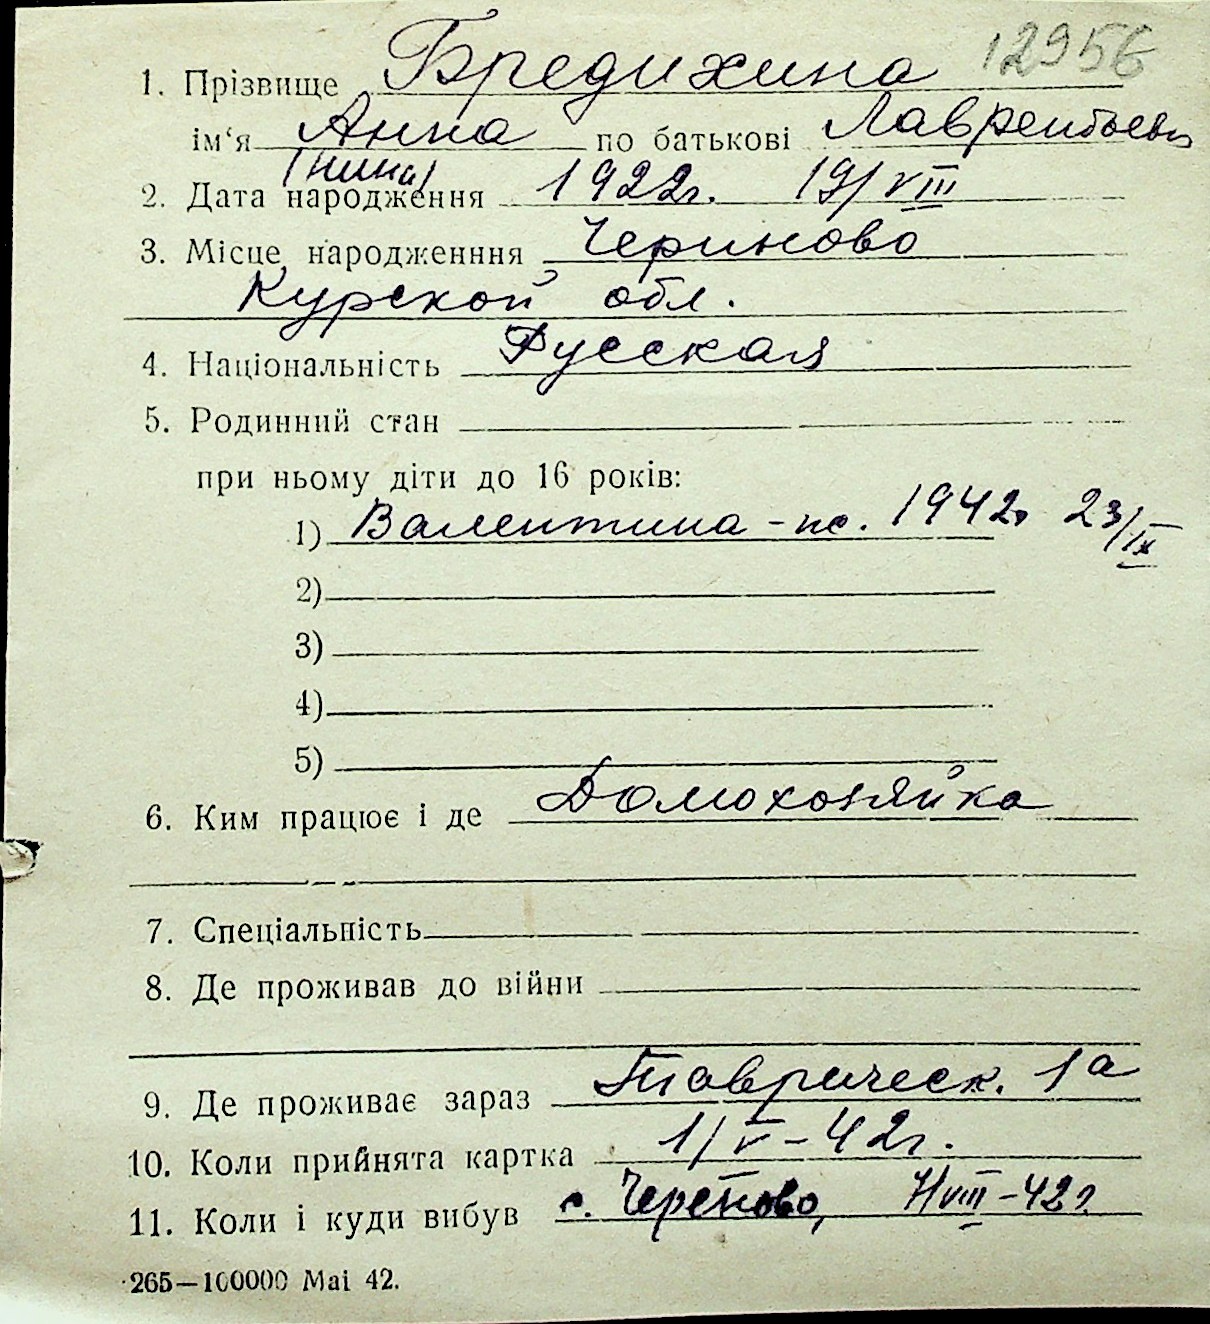 12956
1. Прізвище Бредихина
ім‘я Анна по батькові Лаврентьевн
(Нина)
2. Дата народження 1922г. 19/VIII
3. Місце народженння Чериново
Курской обл.
4. Національність Русская
5. Родинний стан
при ньому діти до 16 років:
1) Валентина - 1942г 23/IX
2)
3)
4)
5)
6. Ким працює і де Домохозяйка
7. Спеціальність
8. Де проживав до війни
9. Де проживає зараз Таврическ. 1а
10. Коли прийнята картка 1/V-42г.
11. Коли і куди вибув с. Черепово, 7/VIII-42г.
265—100000 Mai 42.